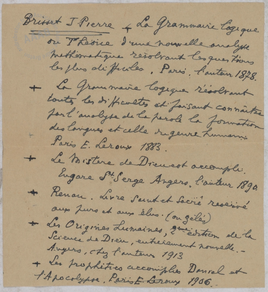 Brisset J. Pierre + La Grammaire logique
ou Théorie d'une nouvelle analyse
mathématique résolvant les questions
les plus difficiles. Paris, l'auteur 1878.
+ La Grammaire logique résolvant
toutes les difficultés et faisant connaître
par l'analyse de la parole la formation
des langues et celle du genre humain
Paris E. Leroux 1883.
+ Le Mystère de Dieu est accompli.
Engare St Serge Angers, l'auteur 1890
+ Livre Saint et Sacré
aux purs et aux
+ Les Origines humaines, 2ème édition de la
Science de Dieu, entièrement nouvelle -
Angers, chez l'auteur 1913
+ Les prophéties accomplies Daniel et
l'Apocalypse. Paris E. Leroux 1906.